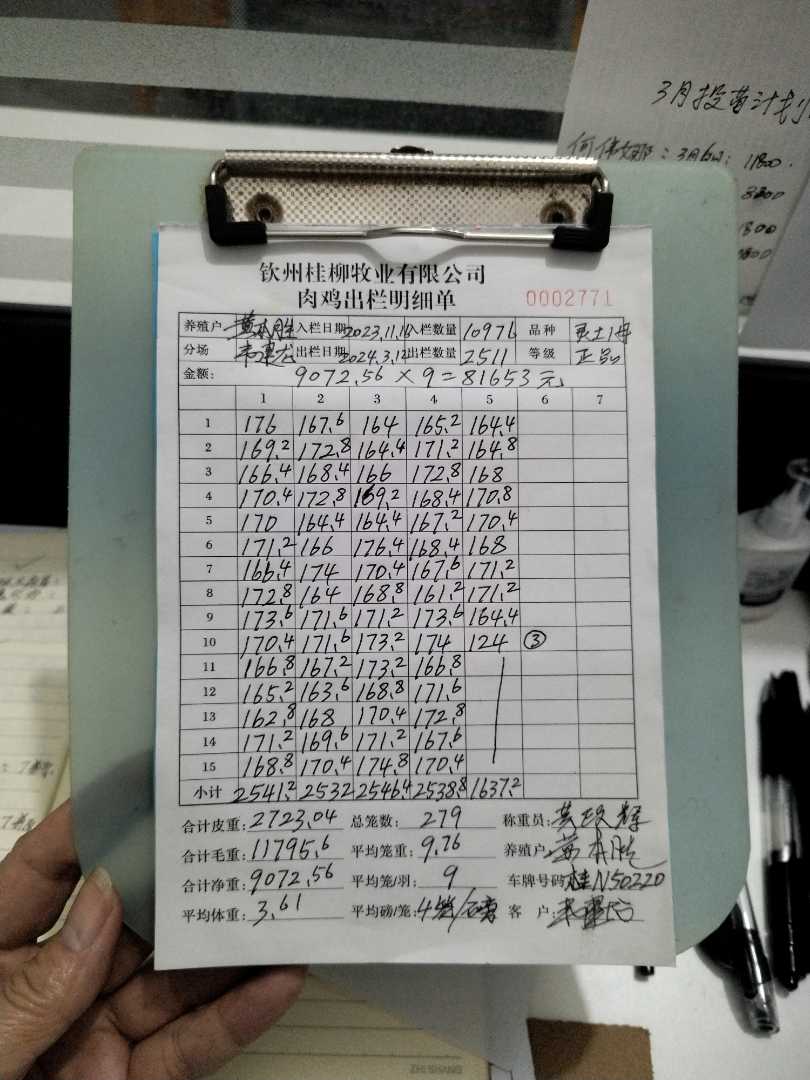 3月投苗计划
3月6日: 11800.
8800
1800
800
钦州桂柳牧业有限公司
肉鸡出栏明细单
0002771
养殖户 黄本胜 入栏日期 2023.11.14 入栏数量 10976 品种 灵土1号
分场 韦建龙 出栏日期 2024.3.12 出栏数量 2511 等级 正品
金额: 9072.56 × 9 = 81653 元
1 2 3 4 5 6 7
1 176 167.6 164 165.2 164.4
2 169.2 172.8 164.4 171.2 164.8
3 166.4 168.4 166 172.8 168
4 170.4 172.8 169.2 168.4 170.8
5 170 164.4 164.4 167.2 170.4
6 171.2 166 176.4 168.4 168
7 166.4 174 170.4 167.6 171.2
8 172.8 164 168.8 161.2 171.2
9 173.6 171.6 171.2 173.6 164.4
10 170.4 171.6 173.2 174 124 ③
11 166.8 167.2 173.2 166.8
12 165.2 163.6 168.8 171.6
13 162.8 168 170.4 172.8
14 171.2 169.6 171.2 167.6
15 168.8 170.4 174.8 170.4
小计 2541.2 2532 2546.4 2538.8 1637.2
合计皮重: 2723.04 总笼数: 279 称重员:
合计毛重: 11795.6 平均笼重: 9.76 养殖户: 黄本胜
合计净重: 9072.56 平均笼/羽: 9 车牌号码: 桂N50220
平均体重: 3.61 平均磅/笼: 4笼/磅 客 户: